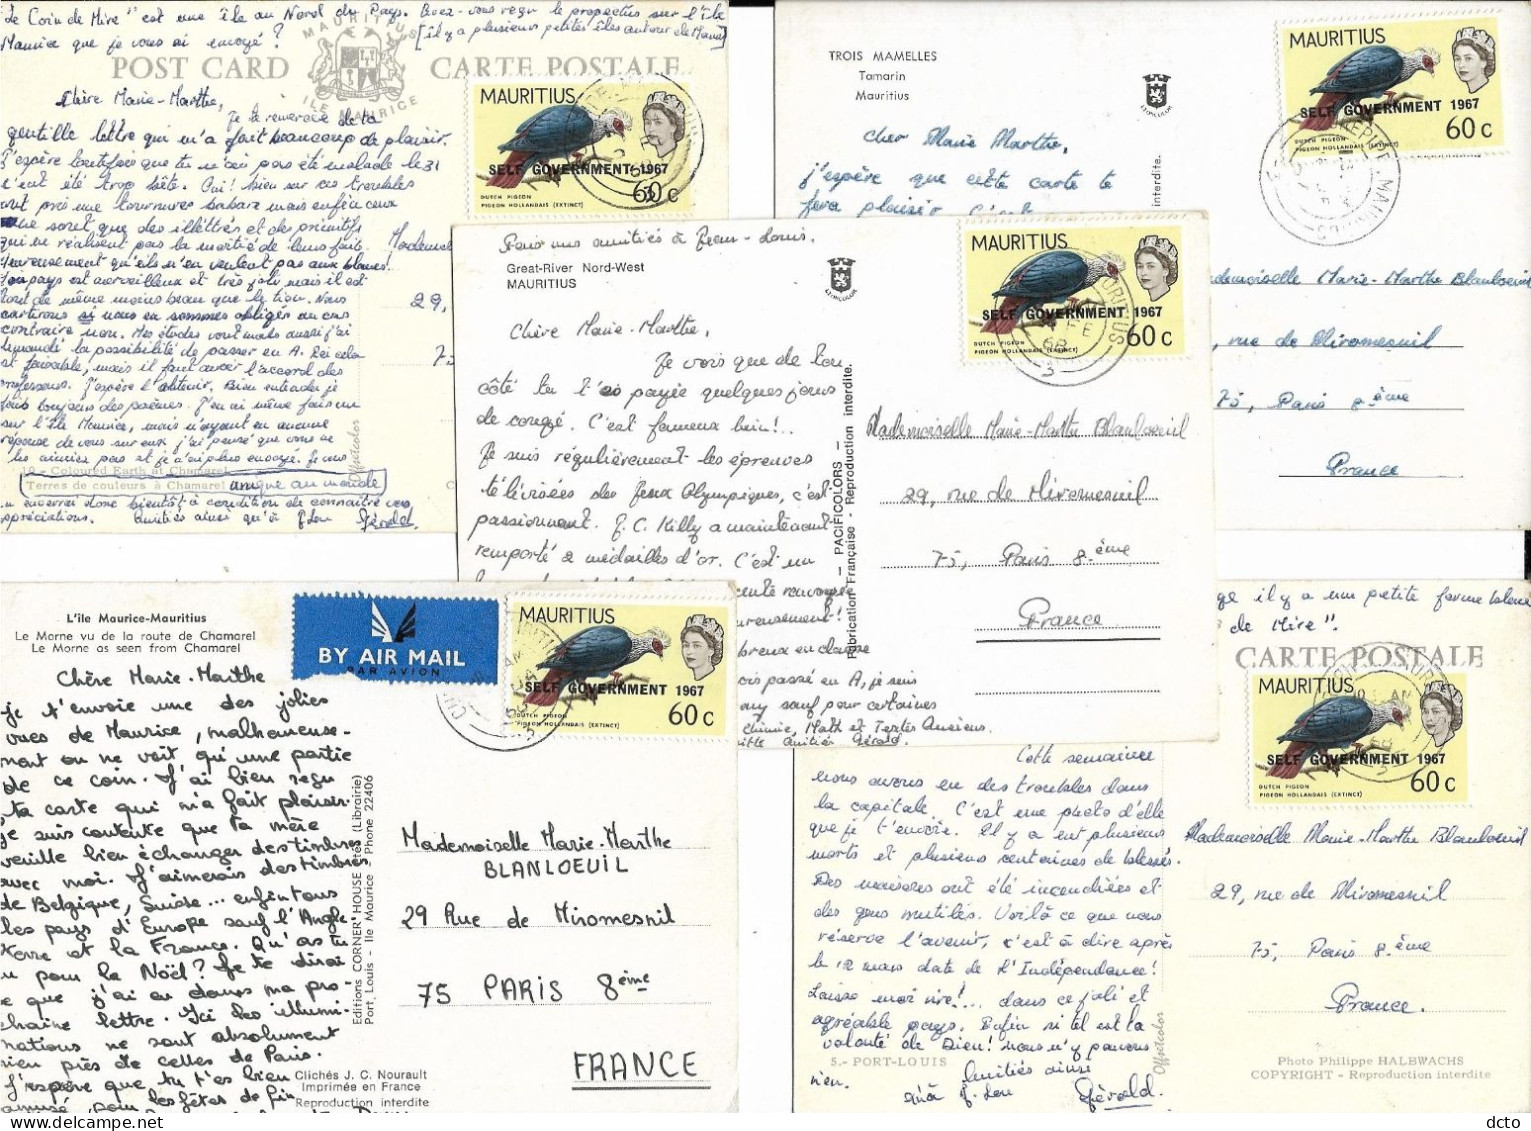 "Le Coin de Mire" est une île au Nord du Pays. Avez-vous reçu le prospectus sur l'île
Maurice que je vous ai envoyé? [il y a plusieurs petites îles autour de Maurice]
POST CARD
CARTE POSTALE
MAURITIUS
ILE MAURICE
Chère Marie-Marthe,
Je te remercie de ta
gentille lettre qui m'a fait beaucoup de plaisir.
J'espère toutefois que tu n'as pas été malade le 31
c'eut été trop bête. Oui! bien sur ces troubles
ont pris une tournure babare mais enfin ceux
sont que des illéttrés et des primitifs
qui ne réalisent pas la portée de leurs faits.
Heureusement qu'ils n'en veulent pas aux blancs!
Mon pays est merveilleux et très joli mais il est
tout de même moins beau que le tien. Nous
partirons si nous en sommes obligés au cas
contraire non. Mes études vont mais aussi j'ai
demandé la possibilité de passer en A. Ici cela
est faisable, mais il faut avoir l'accord des
professeurs. J'espère l'obtenir. Bien entendu je
fais toujours des poèmes. J'en ai même fais un
sur l'Ile Maurice, mais n'ayant eu aucune
réponse de vous sur eux j'ai pensé que vous ne
les aimiez pas et je n'ai plus envoyé. Je vous
10 - Coloured Earth at Chamarel
Terres de couleurs à Chamarel unique au monde
en enverrai donc bientôt à condition de connaître vos
appréciations. Amitiés ainsi qu'à J. Lou Gérald.
Offsetcolor
Mademoi
29,
75
MAURITIUS
SELF GOVERNMENT 1967
60c
DUTCH PIGEON
PIGEON HOLLANDAIS (EXTINCT)
TROIS MAMELLES
Tamarin
Mauritius
LEONCOLOR
Cher Marie Marthe,
j'espère que cette carte te
fera plaisir. C'est
interdite.
MAURITIUS
SELF GOVERNMENT 1967
60c
DUTCH PIGEON
PIGEON HOLLANDAIS (EXTINCT)
Mademoiselle Marie-Marthe Blanloeuil
, rue de Miromesnil
75, Paris 8ème
France
Great-River Nord-West
MAURITIUS
LEONCOLOR
Chère Marie-Marthe,
Je vois que de ton
côté tu t'es payée quelques jours
de congé. C'est fameux hein!..
Je suis régulièrement les épreuves
télévisées des Jeux Olympiques, c'est
passionnant. J.C. Killy a maintenant
remporté 2 médailles d'or. C'est un
ois passé en A, je suis
ny sauf pour certaines
chimie, Math et Textes Anciens.
Amitiés Gérald.
Fabrication Française - Reproduction interdite.
— PACIFICOLORS —
MAURITIUS
SELF GOVERNMENT 1967
60c
DUTCH PIGEON
PIGEON HOLLANDAIS (EXTINCT)
Mademoiselle Marie-Marthe Blanloeuil
29, rue de Miromesnil
75, Paris 8ème
France
L'île Maurice-Mauritius
Le Morne vu de la route de Chamarel
Le Morne as seen from Chamarel
BY AIR MAIL
PAR AVION
MAURITIUS
SELF GOVERNMENT 1967
60c
DUTCH PIGEON
PIGEON HOLLANDAIS (EXTINCT)
Chère Marie-Marthe
Je t'envoie une des jolies
vues de Maurice, malheureuse-
ment on ne voit qu'une partie
de ce coin. J'ai bien reçu
ta carte qui m'a fait plaisir.
Je suis contente que ta mère
veuille bien échanger des timbres
avec moi. J'aimerais des timbres
de Belgique, Suisse... enfin tous
les pays d'Europe sauf l'Angle-
terre et la France. Qu'as tu
eu pour la Noël? Je te dirai
ce que j'ai eu dans ma pro-
chaine lettre. Ici les illumi-
nations ne sont absolument
rien près de celles de Paris.
J'espère que tu t'es bien
amusé pour les fêtes de fin
Editions CORNER HOUSE Ltée (Librairie)
Port, Louis - Ile Maurice Phone 22406
Clichés J. C. Nourault
Imprimée en France
Reproduction interdite
Mademoiselle Marie-Marthe
BLANLOEUIL
29 Rue de Miromesnil
75 PARIS 8ème
FRANCE
ge il y a une petite ferme
de Mire".
CARTE POSTALE
MAURITIUS
SELF GOVERNMENT 1967
60c
DUTCH PIGEON
PIGEON HOLLANDAIS (EXTINCT)
Cette semaine
nous avons eu des troubles dans
la capitale. C'est une photo d'elle
que je t'envoie. Il y a eut plusieurs
morts et plusieurs centaines de blessés.
Des maisons ont été incendiées et
des gens mutilés. Voilà ce que nous
réserve l'avenir, c'est à dire après
le 12 mars date de l'Indépendance!
Laisse moi rire!... dans ce joli et
agréable pays. Enfin si tel est la
volonté de Dieu! nous n'y pouvons
rien. Amitiés ainsi
qu'à J. Lou Gérald.
5.- PORT-LOUIS
Offsetcolor
Mademoiselle Marie-Marthe Blanloeuil
29, rue de Miromesnil
75, Paris 8ème
France.
Photo Philippe HALBWACHS
COPYRIGHT - Reproduction interdite
dcto